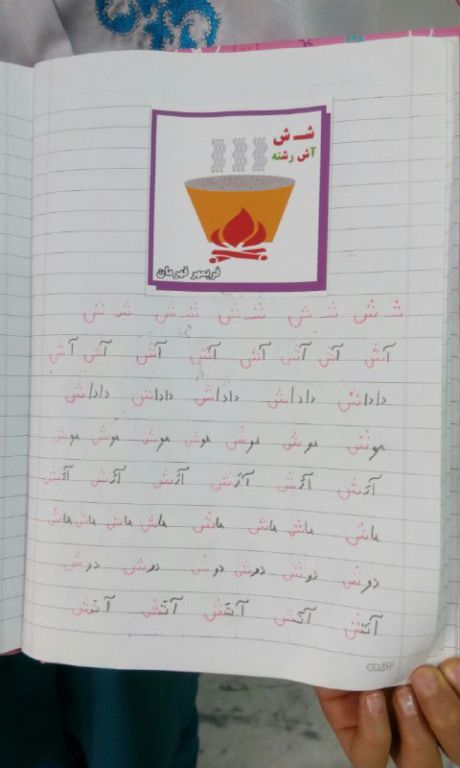 شـ ش
آش رشته
فریمهر قهرمان
شـ ش شـ ش شـ ش شـ ش شـ ش
آش آش آش آش آش آش آش آش
داداش داداش داداش داداش داداش
موش موش موش موش موش موش موش
ماش ماش ماش ماش ماش ماش ماش ماش
دوش دوش دوش دوش دوش دوش
آتَش آتَش آتَش آتَش آتَش